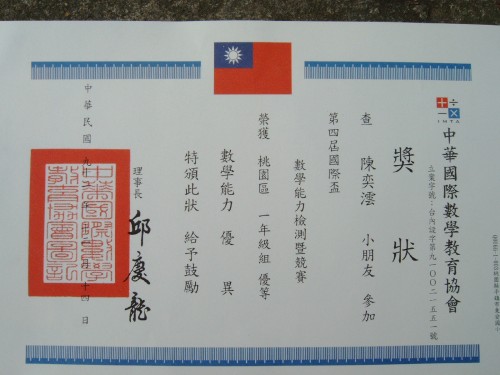 IMTA
中華國際數學教育協會
立案字號：台內社字第九一００二一五五一號
獎狀
查 陳奕澐 小朋友 參加
第四屆國際盃
數學能力檢測暨競賽
榮獲 桃園區 一年級組 優等
數學能力 優 異
特頒此狀 給予鼓勵
理事長 邱慶龍
中華民國
十四日